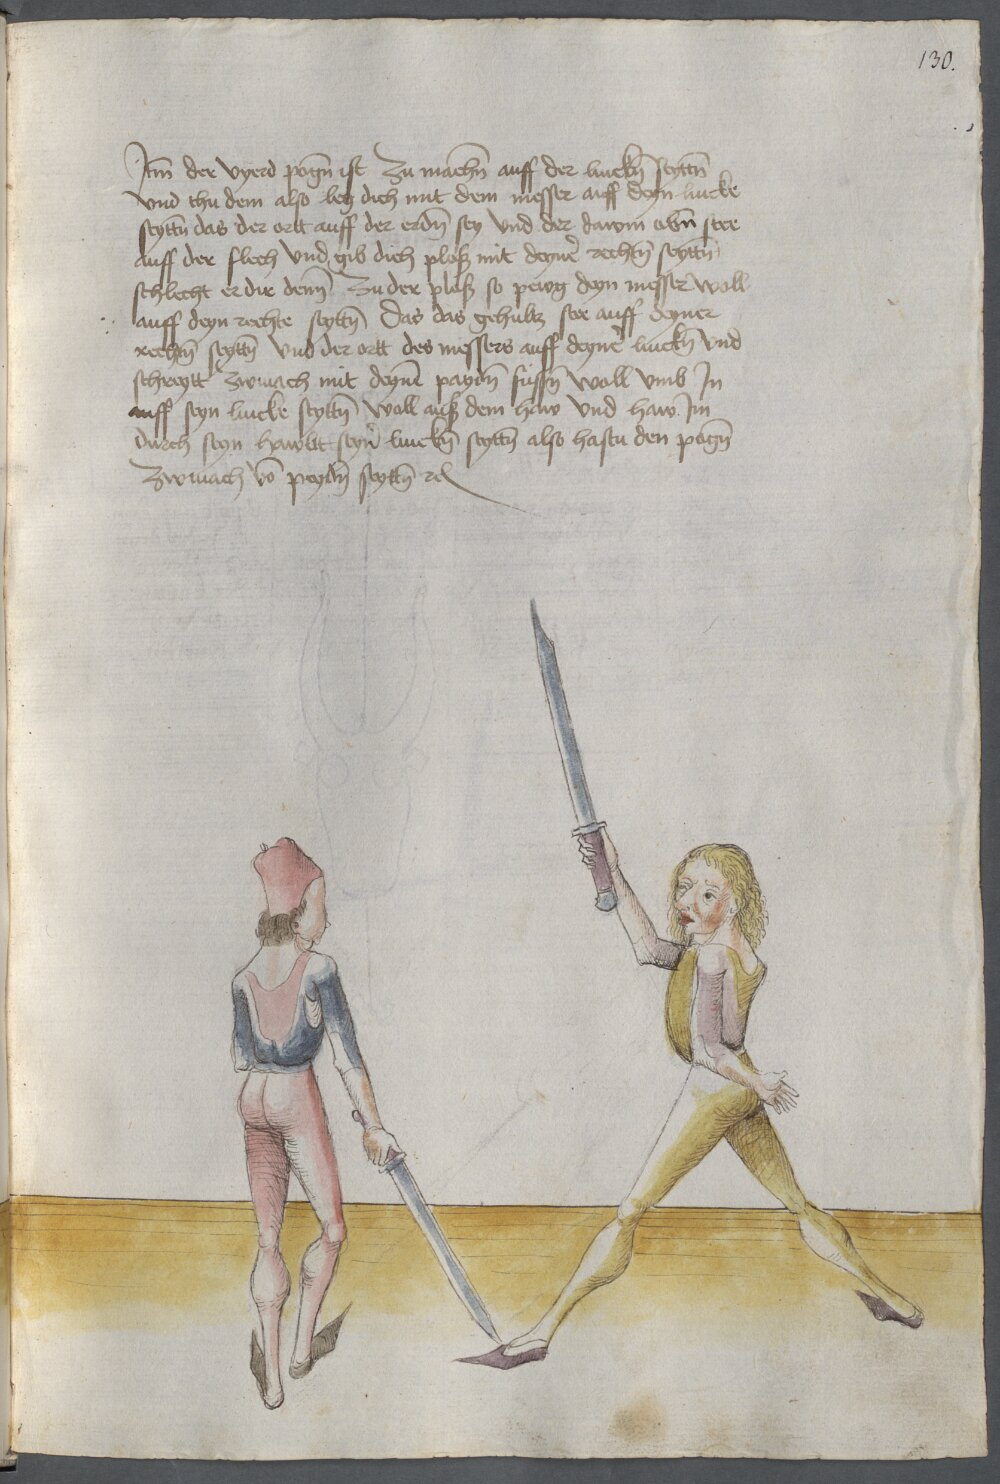 130.
Itm̄ der vyerd pogn̄ ist Zu machn̄ auff der linckn̄ seyttn̄
vnd thu dem also leg dich mit dem messer auff deyn lincke
seyttn̄ das der ortt auff der erdn̄ sey vnd der dawm obn̄ stee
auff der flech vnd gib dich ploß mit deyner̄ rechtn̄ seyttn̄
schlecht er dir denn̄ Zu der plöß so pewg deyn messer woll
auff deyn rechte seyttn̄ das das gehultz stee auff deyner
rechtn̄ seyttn̄ vnd der ortt des messers auff deyner̄ linckn̄ vnd
schreytt Zwinach mit deynē paydn̄ füssn̄ woll vmb In
auff seyn lincke seyttn̄ woll auß dem haw vnd haw Im
durch seyn hawbt seyn̄ linckn̄ seyttn̄ also hastu den pogn̄
Zwinach vō paydn̄ seyttn̄ rc